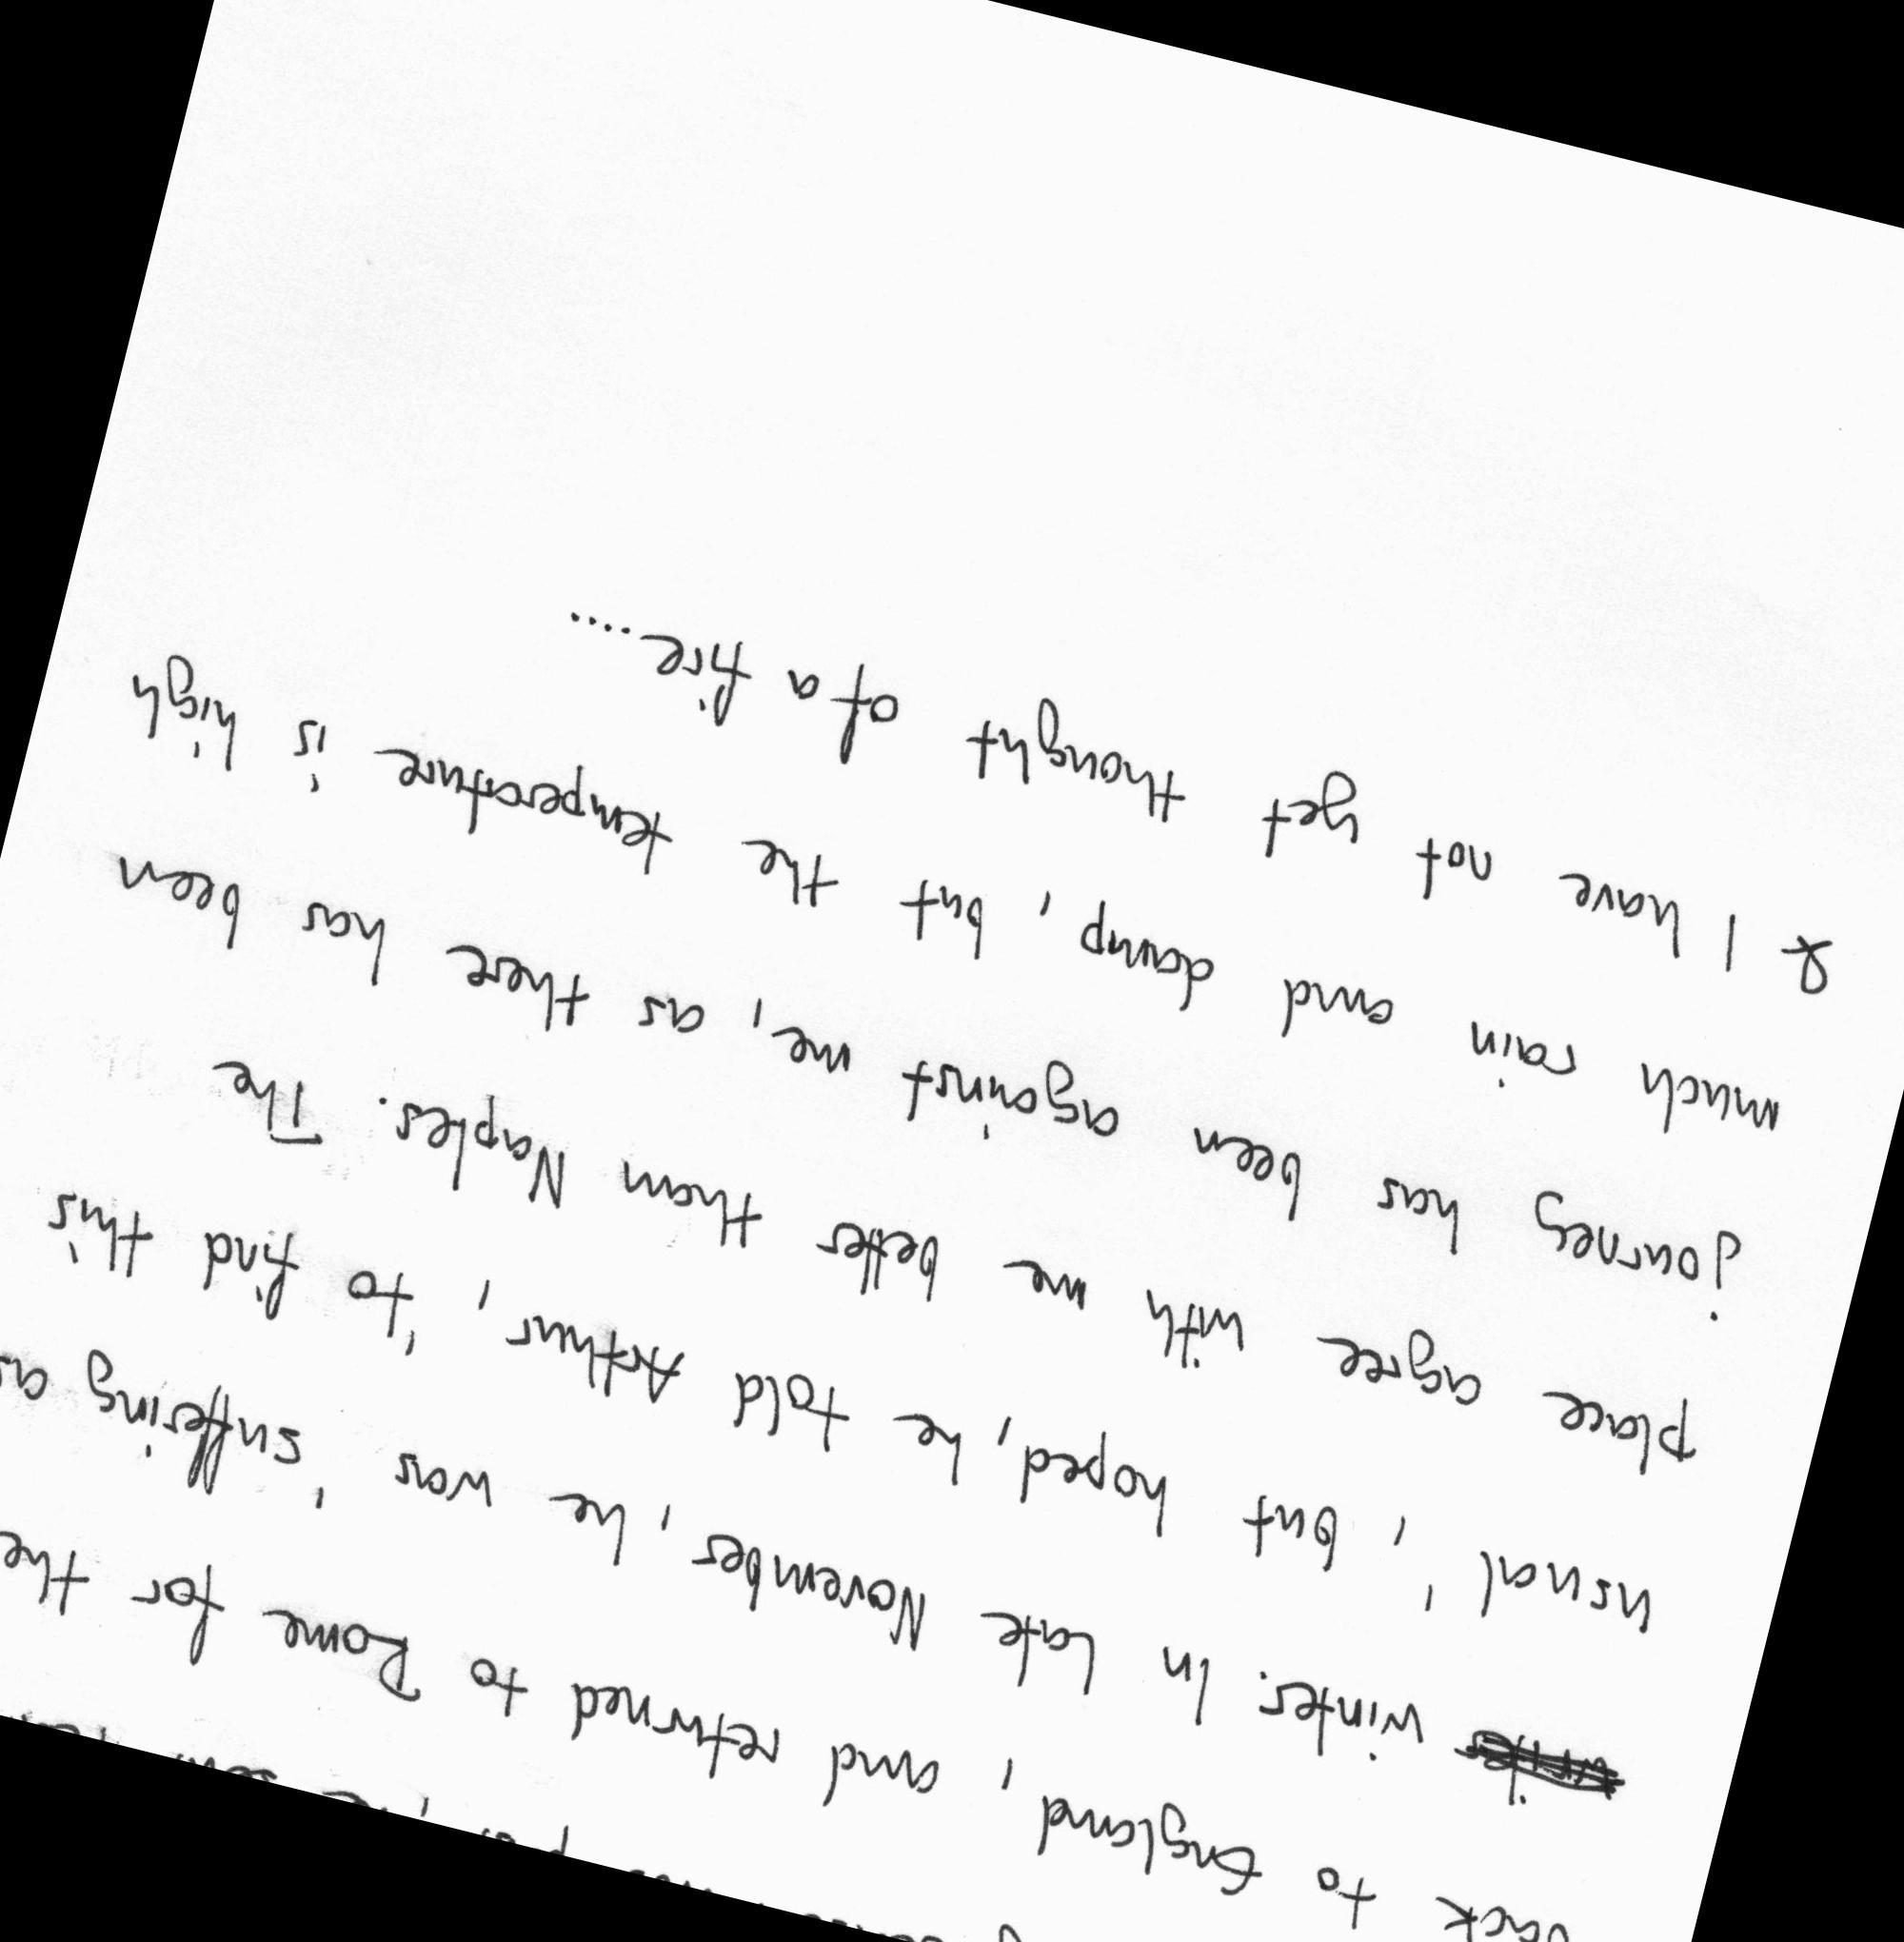 back to England, and returned to Rome for the
winter. In late November, he was 'suffering as
usual', but hoped, he told Arthur, 'to find this
place agree with me better than Naples. The
journey has been against me, as there has been
much rain and damp, but the temperature is high
& I have not yet thought of a fire....